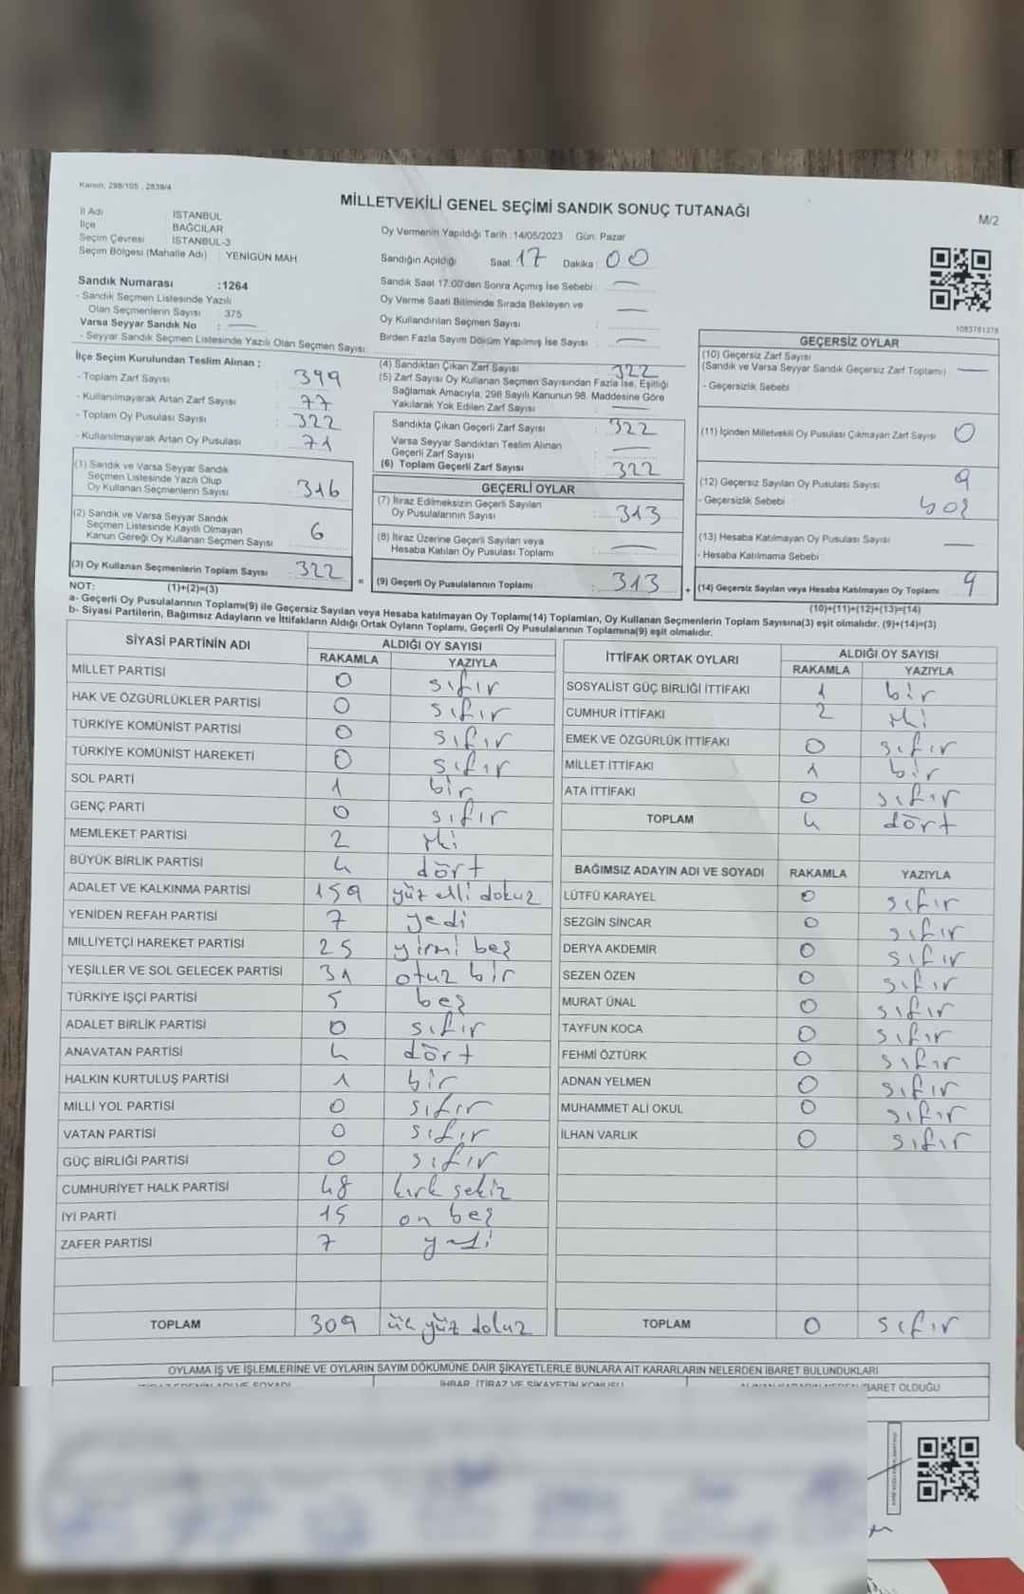 Kanun, 298/105 , 2839/4
MİLLETVEKİLİ GENEL SEÇİMİ SANDIK SONUÇ TUTANAĞI
M/2
İl Adı İSTANBUL
İlçe BAĞCILAR
Seçim Çevresi İSTANBUL-3
Seçim Bölgesi (Mahalle Adı) YENİGÜN MAH
Oy Vermenin Yapıldığı Tarih :14/05/2023 Gün: Pazar
Sandığın Açıldığı Saat: 17 Dakika: 00
Sandık Saat 17:00'den Sonra Açımış İse Sebebi : —
Oy Verme Saati Bitiminde Sırada Bekleyen ve
Oy Kullandırılan Seçmen Sayısı : —
Birden Fazla Sayım Döküm Yapılmış İse Sayısı : —
Sandık Numarası :1264
- Sandık Seçmen Listesinde Yazılı
Olan Seçmenlerin Sayısı 375
Varsa Seyyar Sandık No : —
- Seyyar Sandık Seçmen Listesinde Yazılı Olan Seçmen Sayısı:
İlçe Seçim Kurulundan Teslim Alınan :
- Toplam Zarf Sayısı : 399
- Kullanılmayarak Artan Zarf Sayısı : 77
- Toplam Oy Pusulası Sayısı : 322
- Kullanılmayarak Artan Oy Pusulası : 71
(1) Sandık ve Varsa Seyyar Sandık
Seçmen Listesinde Yazılı Olup
Oy Kullanan Seçmenlerin Sayısı : 316
(2) Sandık ve Varsa Seyyar Sandık
Seçmen Listesinde Kayıtlı Olmayan
Kanun Gereği Oy Kullanan Seçmen Sayısı : 6
(3) Oy Kullanan Seçmenlerin Toplam Sayısı : 322
(4) Sandıktan Çıkan Zarf Sayısı : 322
(5) Zarf Sayısı Oy Kullanan Seçmen Sayısından Fazla İse, Eşitliği
Sağlamak Amacıyla, 298 Sayılı Kanunun 98. Maddesine Göre
Yakılarak Yok Edilen Zarf Sayısı : —
Sandıkta Çıkan Geçerli Zarf Sayısı : 322
Varsa Seyyar Sandıktan Teslim Alınan
Geçerli Zarf Sayısı : —
(6) Toplam Geçerli Zarf Sayısı : 322
GEÇERLİ OYLAR
(7) İtiraz Edilmeksizin Geçerli Sayılan
Oy Pusulalarının Sayısı : 313
(8) İtiraz Üzerine Geçerli Sayılan veya
Hesaba Katılan Oy Pusulası Toplamı : —
= (9) Geçerli Oy Pusulalarının Toplamı : 313
1083781378
GEÇERSİZ OYLAR
(10) Geçersiz Zarf Sayısı
(Sandık ve Varsa Seyyar Sandık Geçersiz Zarf Toplamı) : —
- Geçersizlik Sebebi
(11) İçinden Milletvekili Oy Pusulası Çıkmayan Zarf Sayısı : 0
(12) Geçersiz Sayılan Oy Pusulası Sayısı : 9
- Geçersizlik Sebebi boş
(13) Hesaba Katılmayan Oy Pusulası Sayısı : —
- Hesaba Katılmama Sebebi
+ (14) Geçersiz Sayılan veya Hesaba Katılmayan Oy Toplamı : 9
NOT: (1)+(2)=(3)
(10)+(11)+(12)+(13)=(14)
a- Geçerli Oy Pusulalarının Toplamı(9) ile Geçersiz Sayılan veya Hesaba katılmayan Oy Toplamı(14) Toplamları, Oy Kullanan Seçmenlerin Toplam Sayısına(3) eşit olmalıdır. (9)+(14)=(3)
b- Siyasi Partilerin, Bağımsız Adayların ve İttifakların Aldığı Ortak Oyların Toplamı, Geçerli Oy Pusulalarının Toplamına(9) eşit olmalıdır.
SİYASİ PARTİNİN ADI ALDIĞI OY SAYISI
RAKAMLA YAZIYLA
MİLLET PARTİSİ 0 sıfır
HAK VE ÖZGÜRLÜKLER PARTİSİ 0 sıfır
TÜRKİYE KOMÜNİST PARTİSİ 0 sıfır
TÜRKİYE KOMÜNİST HAREKETİ 0 sıfır
SOL PARTİ 1 bir
GENÇ PARTİ 0 sıfır
MEMLEKET PARTİSİ 2 iki
BÜYÜK BİRLİK PARTİSİ 4 dört
ADALET VE KALKINMA PARTİSİ 159 yüz elli dokuz
YENİDEN REFAH PARTİSİ 7 yedi
MİLLİYETÇİ HAREKET PARTİSİ 25 yirmi beş
YEŞİLLER VE SOL GELECEK PARTİSİ 31 otuz bir
TÜRKİYE İŞÇİ PARTİSİ 5 beş
ADALET BİRLİK PARTİSİ 0 sıfır
ANAVATAN PARTİSİ 4 dört
HALKIN KURTULUŞ PARTİSİ 1 bir
MİLLİ YOL PARTİSİ 0 sıfır
VATAN PARTİSİ 0 sıfır
GÜÇ BİRLİĞİ PARTİSİ 0 sıfır
CUMHURİYET HALK PARTİSİ 48 kırk sekiz
İYİ PARTİ 15 on beş
ZAFER PARTİSİ 7 yedi
TOPLAM 309 üç yüz dokuz
İTTİFAK ORTAK OYLARI ALDIĞI OY SAYISI
RAKAMLA YAZIYLA
SOSYALİST GÜÇ BİRLİĞİ İTTİFAKI 1 bir
CUMHUR İTTİFAKI 2 iki
EMEK VE ÖZGÜRLÜK İTTİFAKI 0 sıfır
MİLLET İTTİFAKI 1 bir
ATA İTTİFAKI 0 sıfır
TOPLAM 4 dört
BAĞIMSIZ ADAYIN ADI VE SOYADI RAKAMLA YAZIYLA
LÜTFÜ KARAYEL 0 sıfır
SEZGİN SİNCAR 0 sıfır
DERYA AKDEMİR 0 sıfır
SEZEN ÖZEN 0 sıfır
MURAT ÜNAL 0 sıfır
TAYFUN KOCA 0 sıfır
FEHMİ ÖZTÜRK 0 sıfır
ADNAN YELMEN 0 sıfır
MUHAMMET ALİ OKUL 0 sıfır
İLHAN VARLIK 0 sıfır
TOPLAM 0 sıfır
OYLAMA İŞ VE İŞLEMLERİNE VE OYLARIN SAYIM DÖKÜMÜNE DAİR ŞİKAYETLERLE BUNLARA AİT KARARLARIN NELERDEN İBARET BULUNDUKLARI
İHBAR, İTİRAZ VE ŞİKAYETİN KONUSU
OLDUĞU